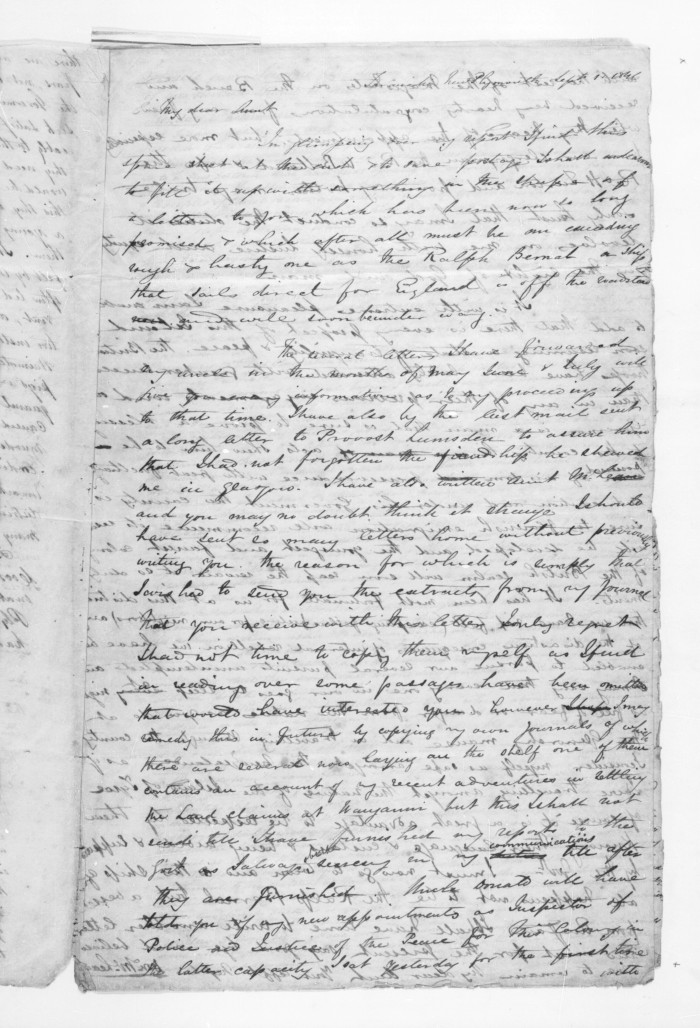 New Plymouth Sept 1st 1846
My dear Aunt
In wrapping up my report I find this
spare sheet at the and to save postage I shall endeavour
to fill it up with something in the shape of
a letter to you which has been now so long
promised & which after all must be an exceeding
rough & hasty one as the Ralph Bernal a Ship
that sails direct for England is off the roadstead
and will soon be under way.
The several letters I have forwarded
my uncle in the months of May June & July will
information as to my proceedings up
to that time. I have also by the last mail sent
a long letter to Provost Lumsden to assure him
that I had not forgotten the friendship he shewed
me in Glasgow. I have also written Aunt
and you may no doubt think it strange I should
have sent so many letters home without previously
writing you. the reason for which is simply that
I wished to send you the extracts from my Journal
that you receive with this letter I only regret
I had not time to copy them myself as I find
in reading over some passages have been omitted
that would have interested you however I may
remedy this in future by copying my own Journals of which
there are several now laying on the shelf one of them
contains an account of my recent adventures in settling
the Land claims at Wanganui but this I shall not
send till I have furnished my reports to the
Govt as I always in my communications till after
they are furnished. Uncle Donald will have
told you of my new appointments as Inspector of
Police and Justice of the Peace for this Colony in
the latter capacity I sat yesterday for the first time
with